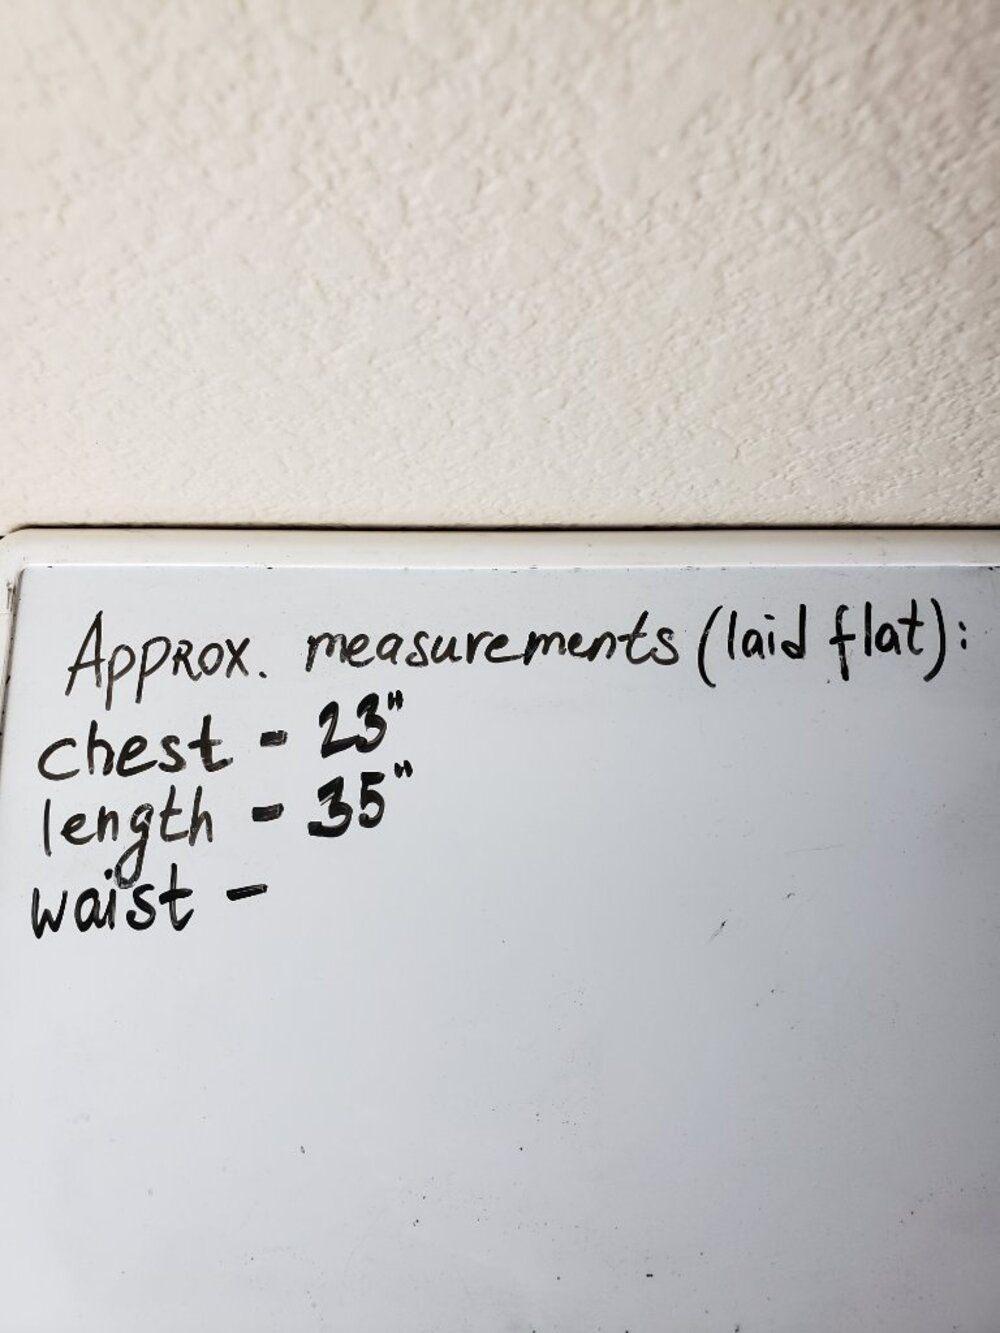 Approx. measurements (laid flat):
chest - 23"
length - 35"
waist -